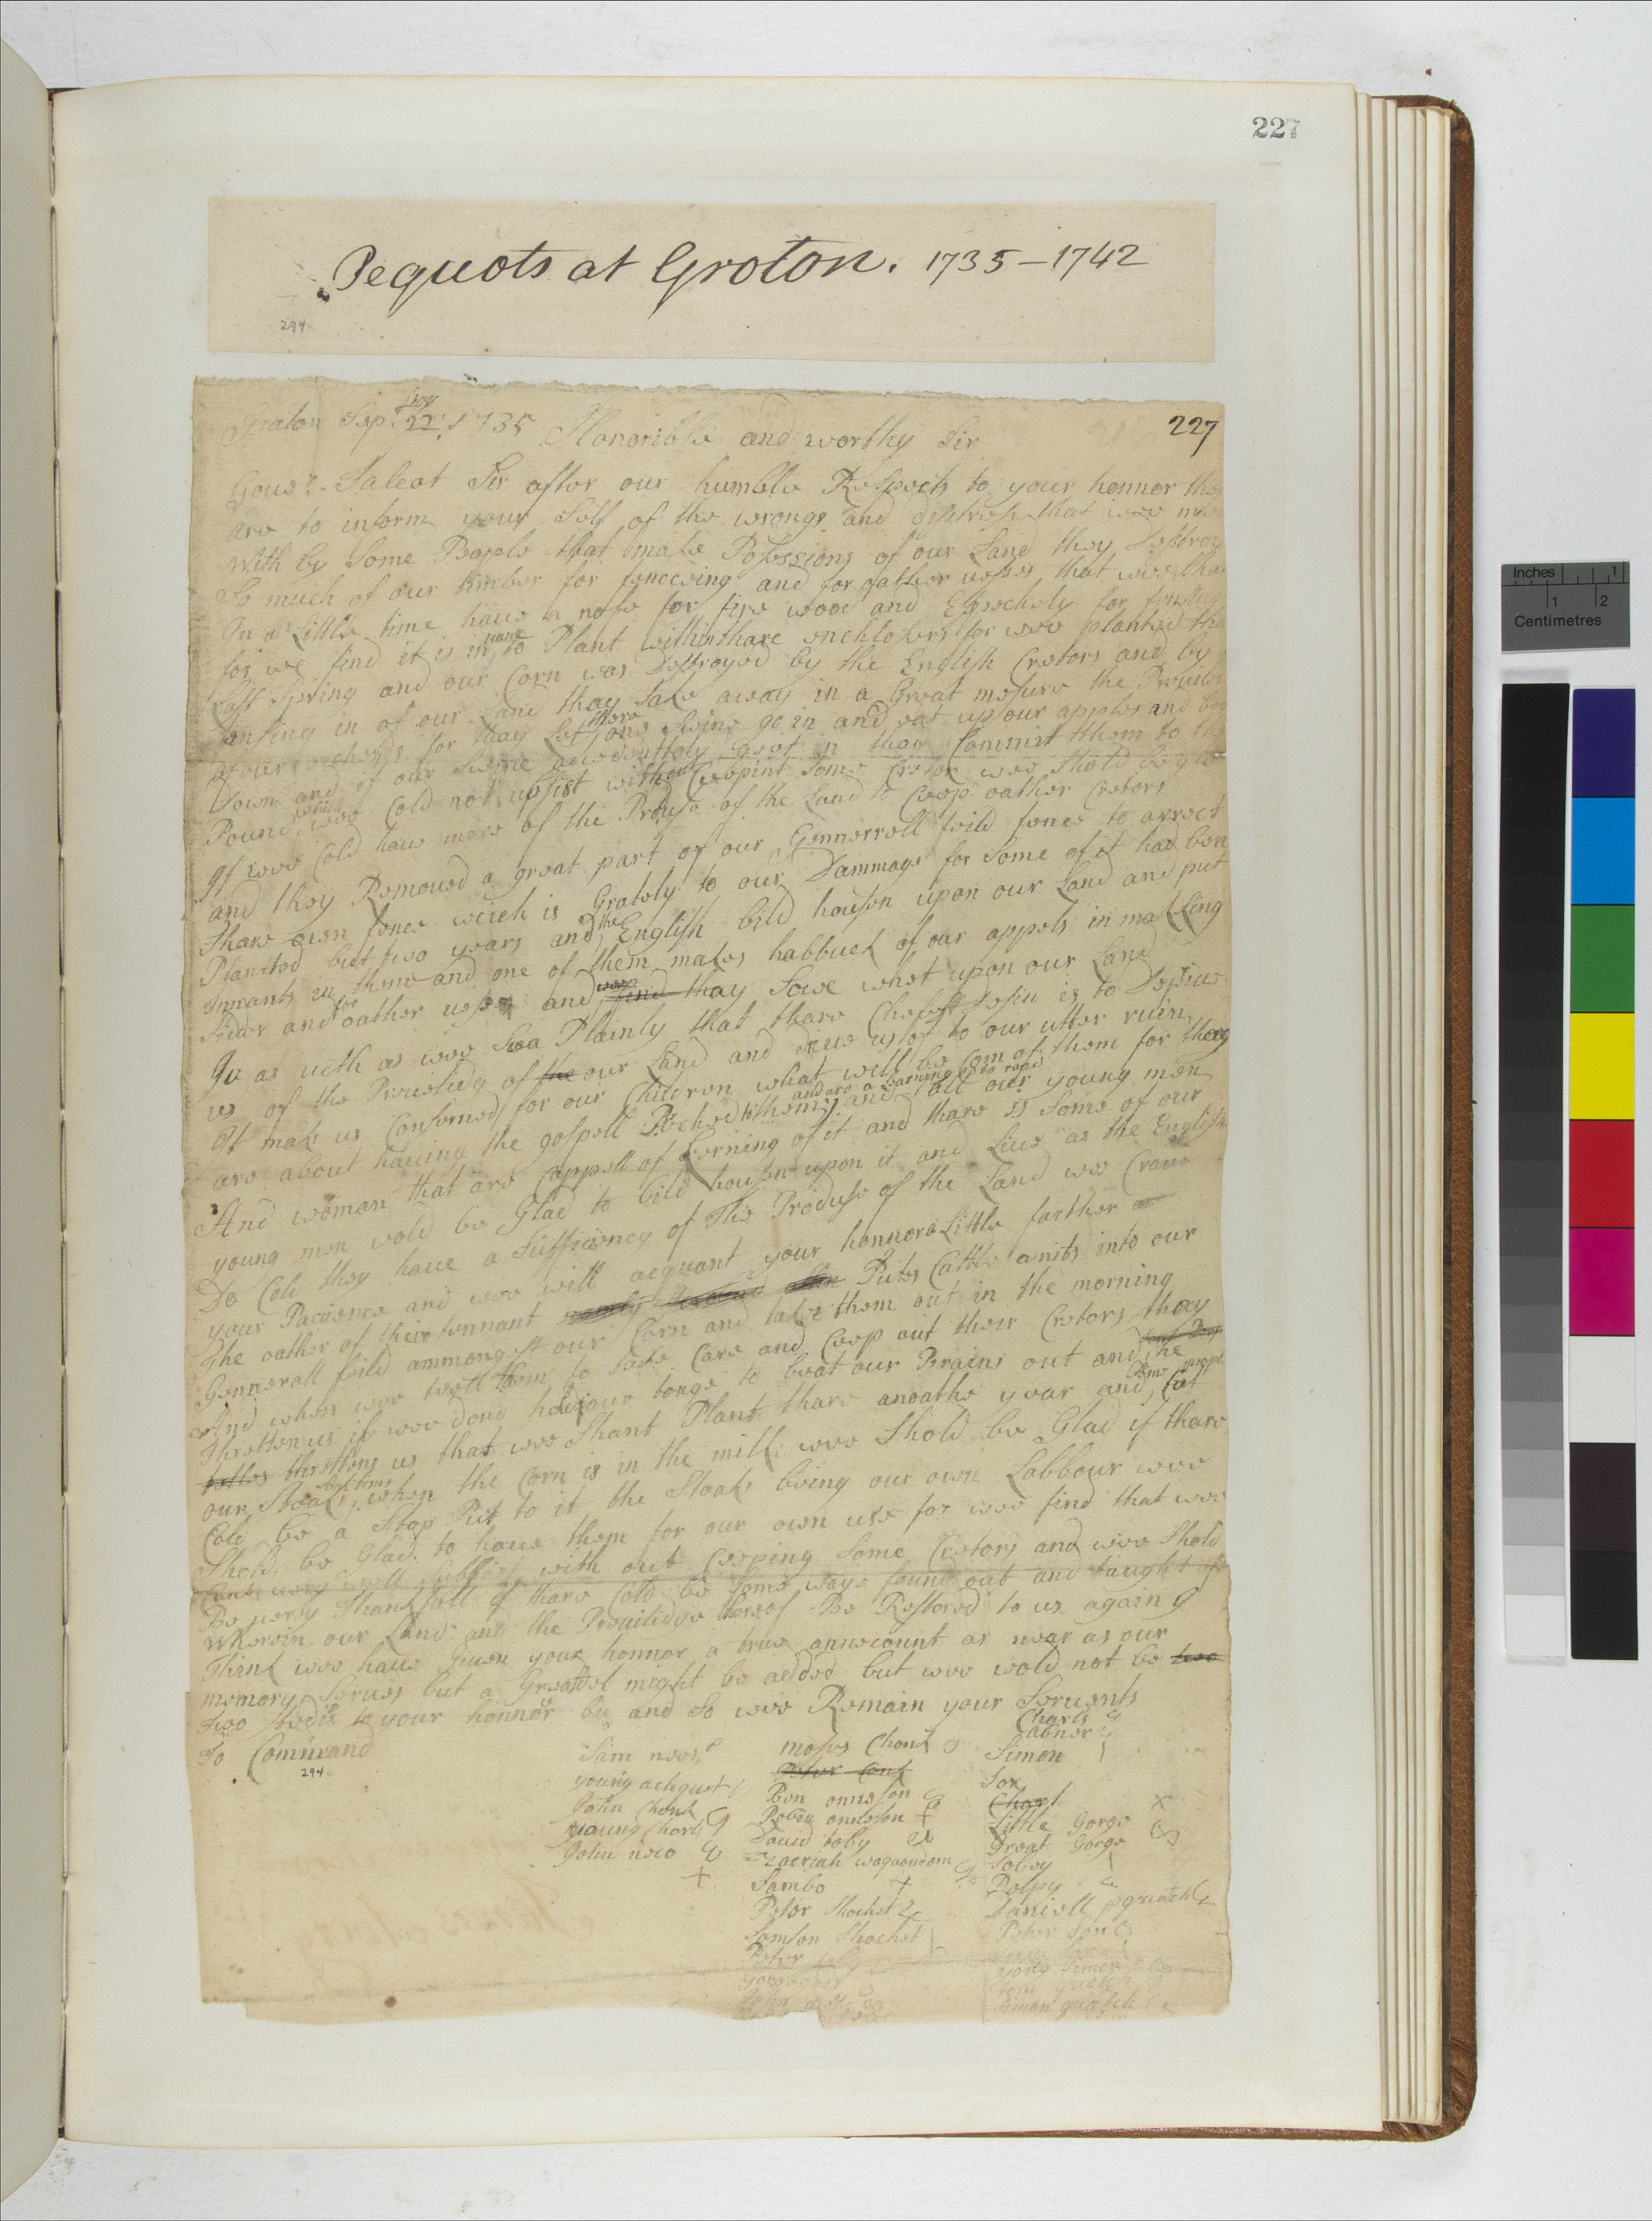 227
Pequots at Groton. 1735-1742
294
227
Groton Sepr 22 1735 Honorible and worthy Sir
Gouer. Taleot Sir after our humble Respects to your honnor thes
are to inform your Self of the wrongs and distress that wee
with by Some People that make Possessions of our Land they Destroy
So much of our timber for fenceing and for oather uses that wee
In a Little time haue a nofe for fire wood and Especkely for fensing
for we find it is in uane to Plant within thare Inclosers for wee planted the
Last Spring and our Corn was Destroyed by the English Cretors and by
fensing in of our Land thay take away in a Great mesure the
of our orcherds for thay Let thare one Swine go in and eat up our apples and
Down and if our Swine accedentely geet in thay Commit them to the
Pound which wee Cold not subsist without Ceepint Some Cretor wee Shold be
If wee Cold haue more of the Produse of the Land to Ceep oather Cretors
and they Remoued a great part of our Gennerroll feild fence to arrect
thare own fence weich is Grately to our Dammage for Some of it had ben
Plantted but two years and the English bild housen upon our Land and put
tinnants in them and one of them makes habbuck of our appels in making
Sider and for oather uses and wee find thay Sowe whet upon our Land
In as uch as wee Sea Plainly that thare Chefest desin is to Depriue
us of the Priuelidg of the our Land and Driue us of to our utter ruin
It maks us Conserned for our Children what will be Com of them for thay
are about hauing the gospell Preched to them and are a Larning to read and all our young men
And woman that are Cappell of Lerning of it and thare is Some of our
young men wold be Glad to bild housen upon it and Liue as the English
Do Cold they haue a Sufficiency of The Produse of the Land wee Craue
your Pacience and wee will acquant your honnor a Little farther
The oather of their tennant Puts Cattle anits into our
Gennerall feild ammongest our Corn and take them out in the morning
And when wee tell them to take Care and Ceep out their Cretors thay
thretton us if wee dont hold our tonge to beat our Brains out and he
threttens us that wee Shant Plant thare anoathe year and Some peopel Cut
our Stoaks some times when the Corn is in the milk wee Shold be Glad if thare
Cold be a Stop Put to it the Stoaks being our own Labbour wee
Shold be Glad to haue them for our own use for wee find that wee
Cant uery well Subsist with out Ceeping Some Cretors and wee Shold
Be uerey Thankfull if thare Cold be Some ways found out and taught of
Wherein our Land and the Preuilidge thereof Be Restored to us again
Think wee haue Giuen your honnor a true annecount as near as our
memory Serues but a Greatdel might be added but wee wold not be two
Two tedis to your honnor and So wee Remain your Seruents
To Command
294
Sam nees
young
John Chonk
young Charls
John neeo
moses Chonk
Peter
Ben onneson
Robin onneson
Dauid toby
Zacriah
Sambo
Peter Shocket
Samson Shocket
Peter
Charls
abner
Simon
Jox
Charl
Little Gorge
Great Gorge
Tobey
Polpy
Daniell
Peter
young Simon
Simon
Inches 1
1 2
Centimetres